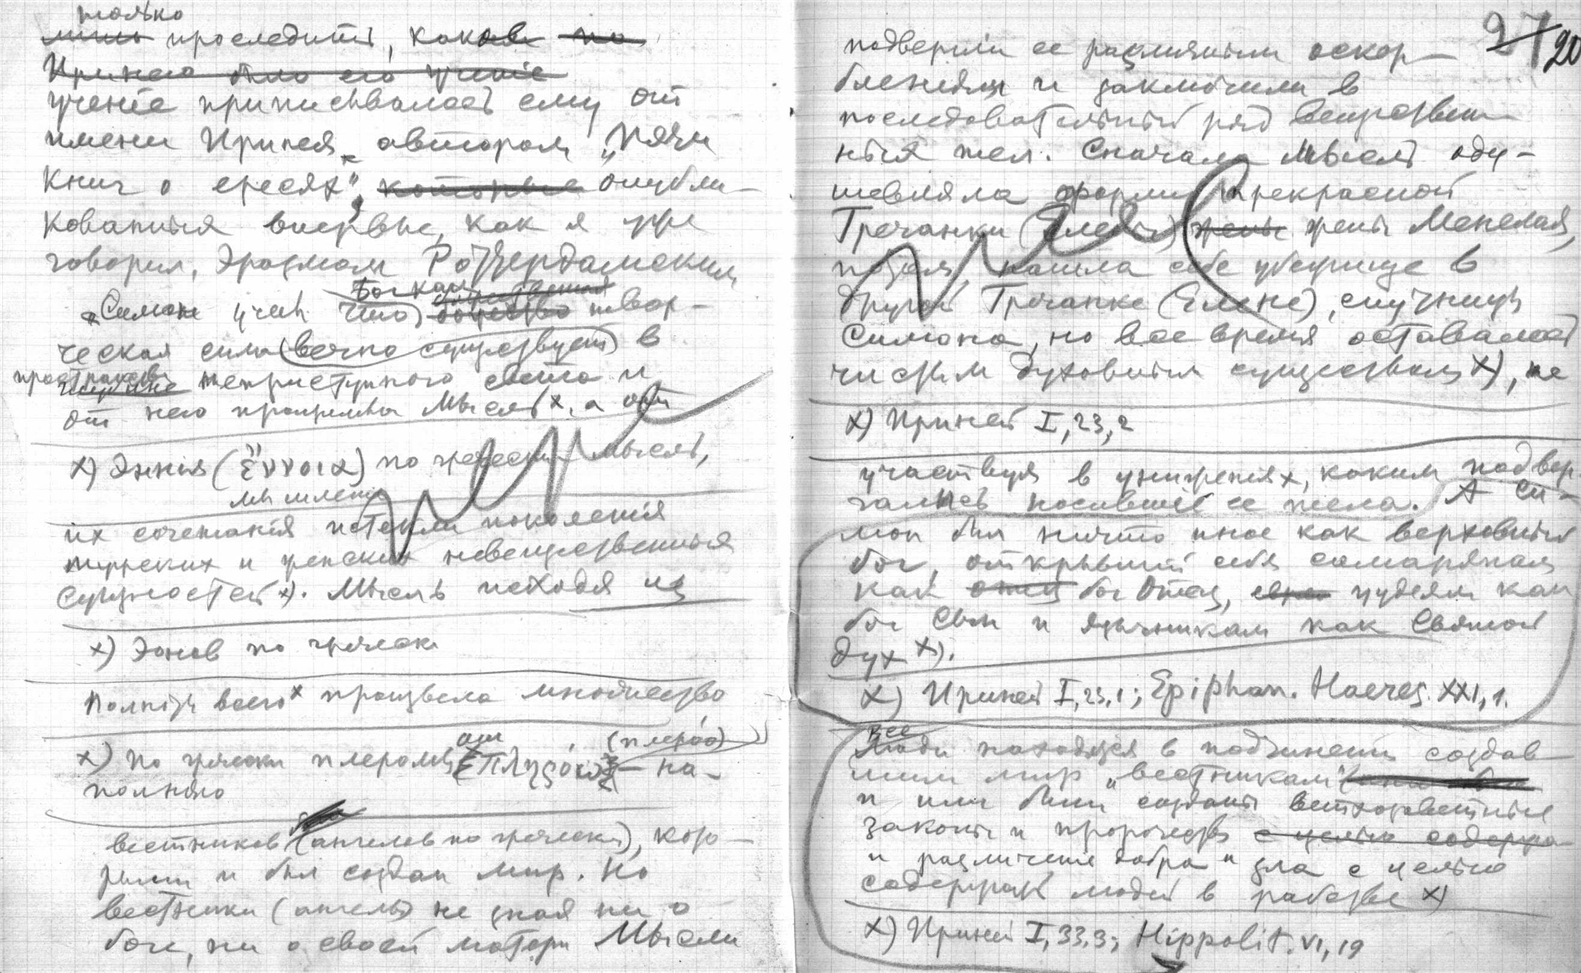 только
лишь проследить, какое по
Иринею было его учение
учение приписывалось ему от
имени Иринея, автором „Пяти
книг о ересях", которые опубли-
кованныя впервые, как я уже
говорил, Эразмом Роттердамским
Симон учил что) божество твор-
ческая сила (вечно существует) в
пространстве неприступного света и
от него произошла Мысль х, а от
х) Энния (Ἔννοια) по гречески мысль,
мышление
их сочетания истекли поколения
мужских и женских невещественных
сущностей х). Мысль исходя из
х) Эонов по гречески
Полноту всего х произвела множество
х) По гречески плерома от πληρόω (плероо) на-
полняю
вестников (ангелов по гречески), кото-
рыми и был создан мир. Но
вестники (ангелы) не зная ни о
боге, ни о своей матери Мысли
27 20
подвергли ее различным оскор-
блениям и заключили в
последовательный ряд веществен-
ных тел. Сначала Мысль оду-
шевляла форму прекрасной
Гречанки (Елены) жены жены Менелая,
нашла себе убежище в
другой Гречанке (Елене), спутнице
Симона, но все время оставалась
чистым духовным существом х), не
х) Ириней I, 23, 2
участвуя в унижениях, каким подвер-
гались носившие ее тела. А Си-
мон был ничто иное как верховный
бог, открывший себя самарянам
как отец бог Отец, иудеям как
бог Сын и язычникам как Святой
дух х).
х) Ириней I, 23, 1; Epiphan. Haeres. XXI, 1.
Все
люди находятся в подчинении создав-
шим мир „вестникам"
и ими были созданы ветхозаветные
законы и пророчества с целью содержа
и различие добра и зла с целью
содержать людей в рабстве х)
х) Ириней I, 33, 3; Hippolit. VI, 19